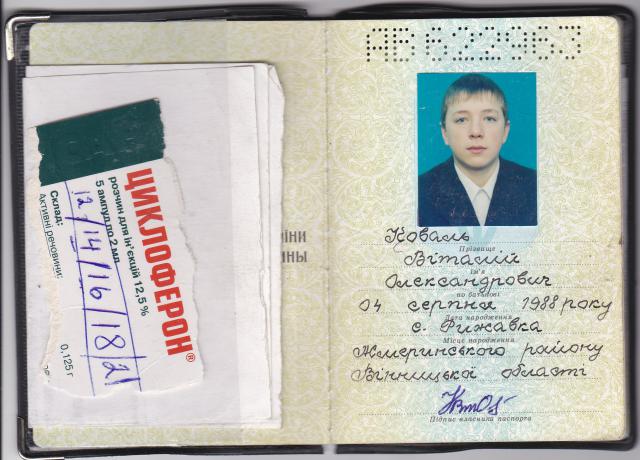 ЦИКЛОФЕРОН®
розчин для ін'єкцій 12,5 %
5 ампул по 2 мл
12/14/16/18/21
Склад:
Активні речовини:
0,125 г
їни
ины
АВ622963
Коваль
Прізвище
Віталій
Ім'я
Олександрович
по батькові
04 серпня 1988 року
Дата народження
с. Рижавка
Місце народження
Жмеринського району
Вінницької області
Підпис власника паспорта